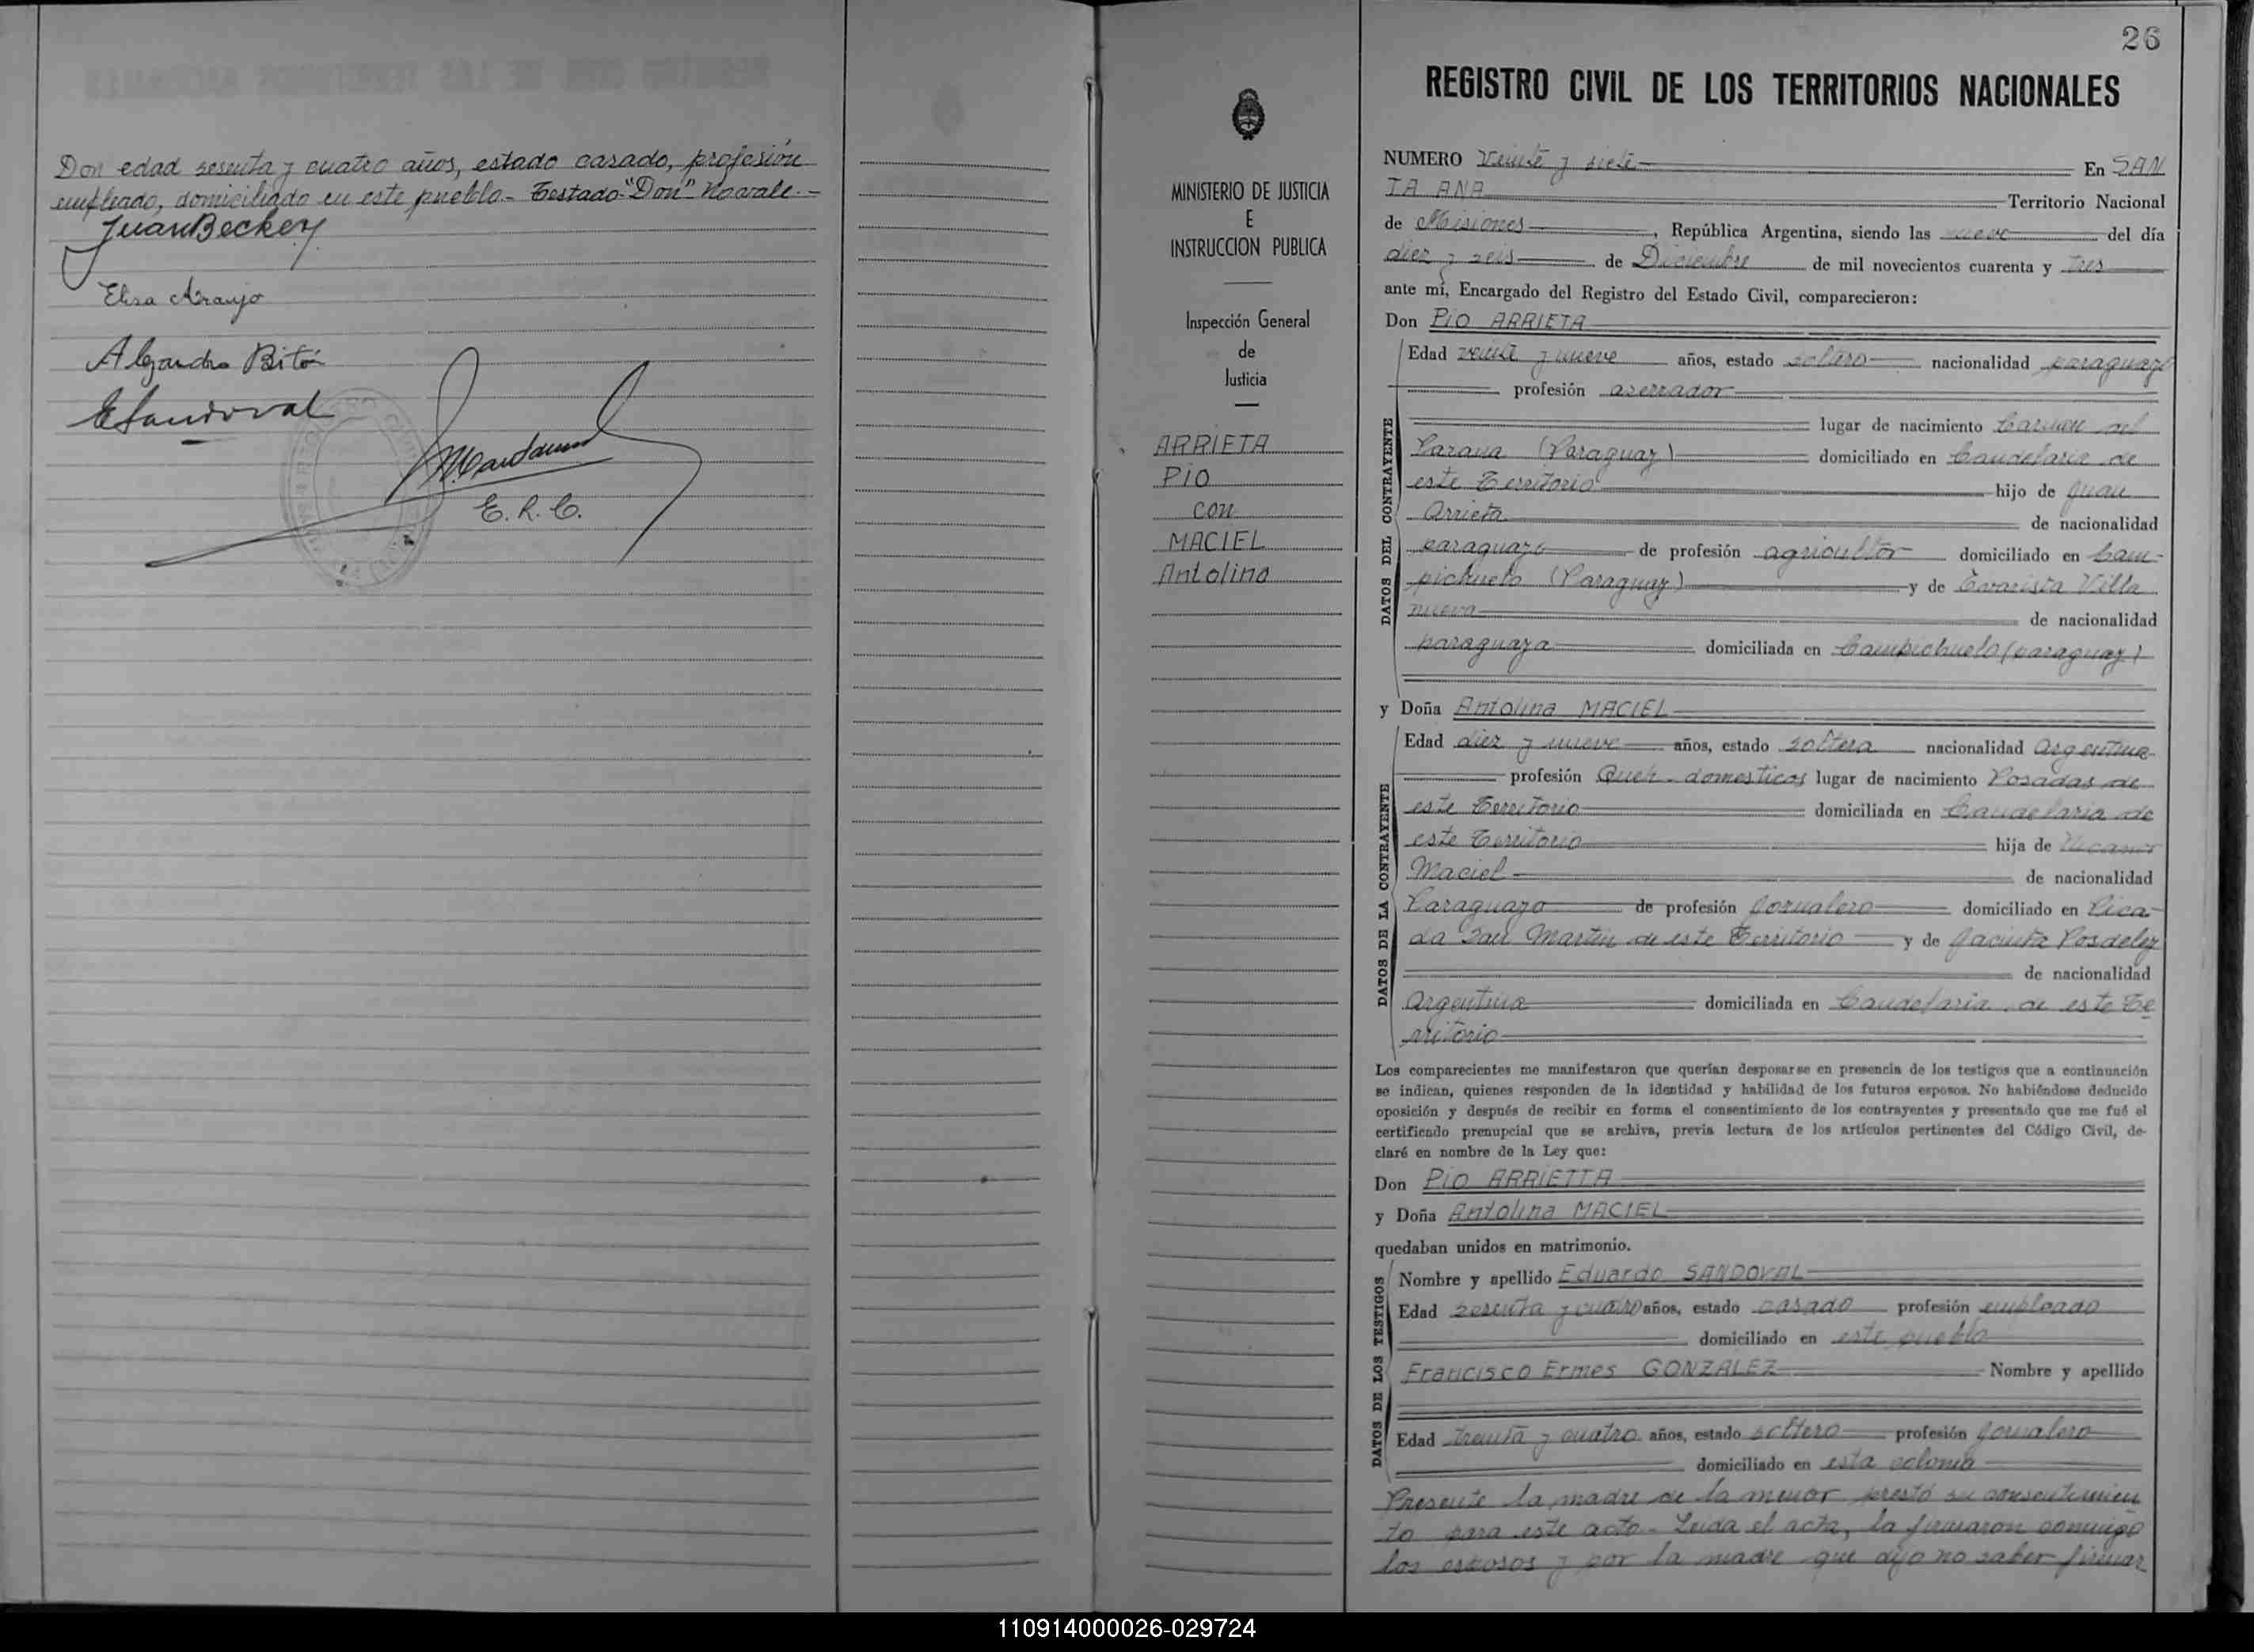 Don edad sesenta y cuatro años, estado casado, profesión
empleado, domiciliado en este pueblo.- Testado-"Don" No vale.-
Juan Becker
Elisa Araujo
Alejandro
ESandoval
E. R. C.
MINISTERIO DE JUSTICIA
E
INSTRUCCION PUBLICA
Inspección General
de
Justicia
ARRIETA
PIO
con
MACIEL
Antolina
26
REGISTRO CIVIL DE LOS TERRITORIOS NACIONALES
NUMERO Veinte y siete En SAN
TA ANA Territorio Nacional
de Misiones, República Argentina, siendo las nueve del día
diez y seis de Diciembre de mil novecientos cuarenta y tres
ante mí, Encargado del Registro del Estado Civil, comparecieron:
Don PIO ARRIETA
Edad veinte y nueve años, estado soltero nacionalidad paraguayo
profesión aserrador
lugar de nacimiento Carmen del
Parana (Paraguay) domiciliado en Candelaria de
este Territorio hijo de Juan
Arrieta de nacionalidad
paraguayo de profesión agricultor domiciliado en Cam-
pichuelo (Paraguay) y de Evarista Villa
nueva de nacionalidad
paraguaya domiciliada en Campichuelo (paraguay)
DATOS DEL CONTRAYENTE
y Doña Antolina MACIEL
Edad diez y nueve años, estado soltera nacionalidad Argentina
profesión Queh. domesticos lugar de nacimiento Posadas de
este Territorio domiciliada en Candelaria de
este Territorio hija de Nicanor
Maciel de nacionalidad
Paraguayo de profesión Jornalero domiciliado en Pica-
da San Martin de este Territorio y de Jacinta Posdeley
de nacionalidad
Argentina domiciliada en Candelaria de este Te
rritorio
DATOS DE LA CONTRAYENTE
Los comparecientes me manifestaron que querían desposarse en presencia de los testigos que a continuación
se indican, quienes responden de la identidad y habilidad de los futuros esposos. No habiéndose deducido
oposición y después de recibir en forma el consentimiento de los contrayentes y presentado que me fué el
certificado prenupcial que se archiva, previa lectura de los artículos pertinentes del Código Civil, de-
claré en nombre de la Ley que:
Don PIO ARRIETTA
y Doña Antolina MACIEL
quedaban unidos en matrimonio.
Nombre y apellido Eduardo SANDOVAL
Edad sesenta y cuatro años, estado casado profesión empleado
domiciliado en este pueblo
Francisco Ermes GONZALEZ Nombre y apellido
Edad treinta y cuatro años, estado soltero profesión Jornalero
domiciliado en esta colonia
DATOS DE LOS TESTIGOS
Presente la madre de la menor prestó su consentimien
to para este acto.- Leida el acta, la firmaron conmigo
los esposos y por la madre que dijo no saber firmar
110914000026-029724